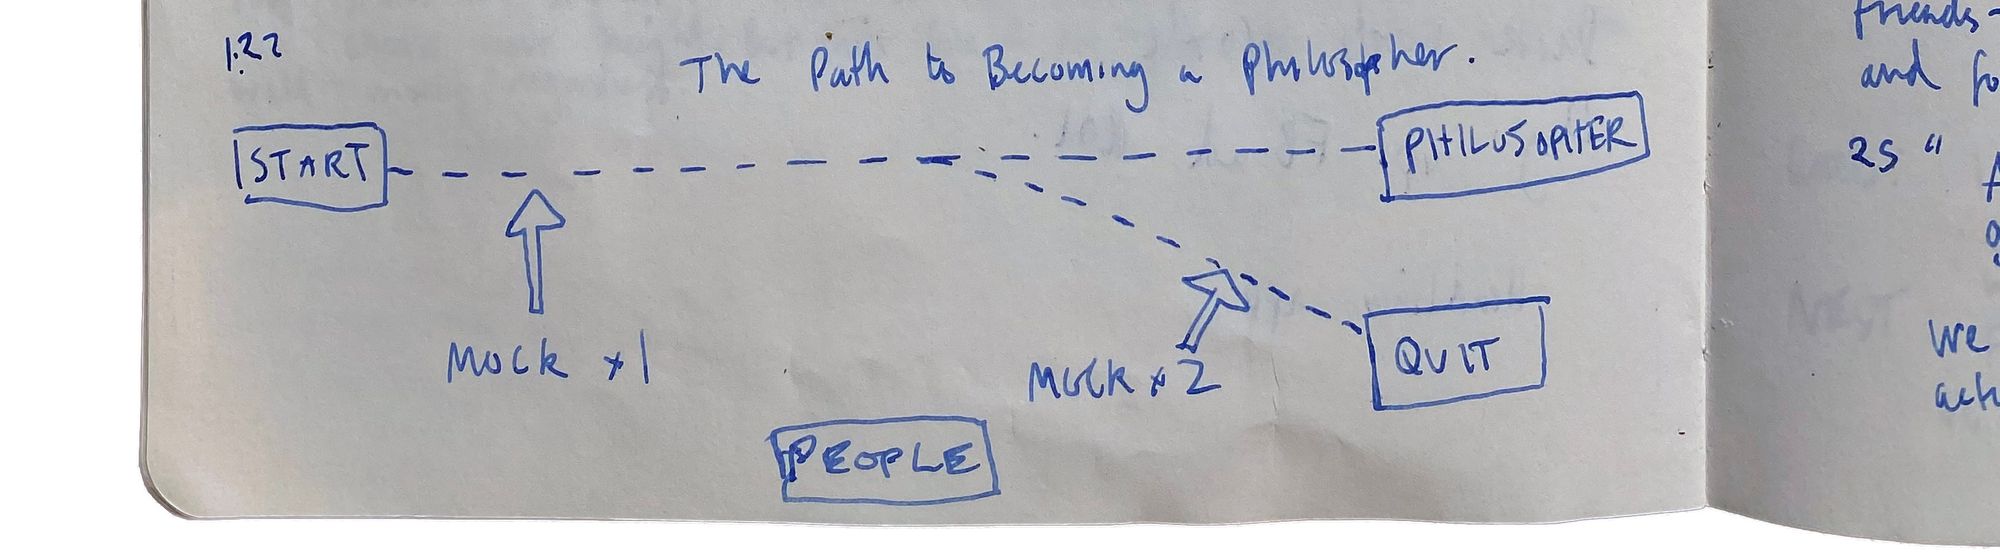 1.22
The Path to Becoming a Philosopher.
START
PHILOSOPHER
Mock x1
Mock x2
QUIT
PEOPLE
friends-
and
25 "
We